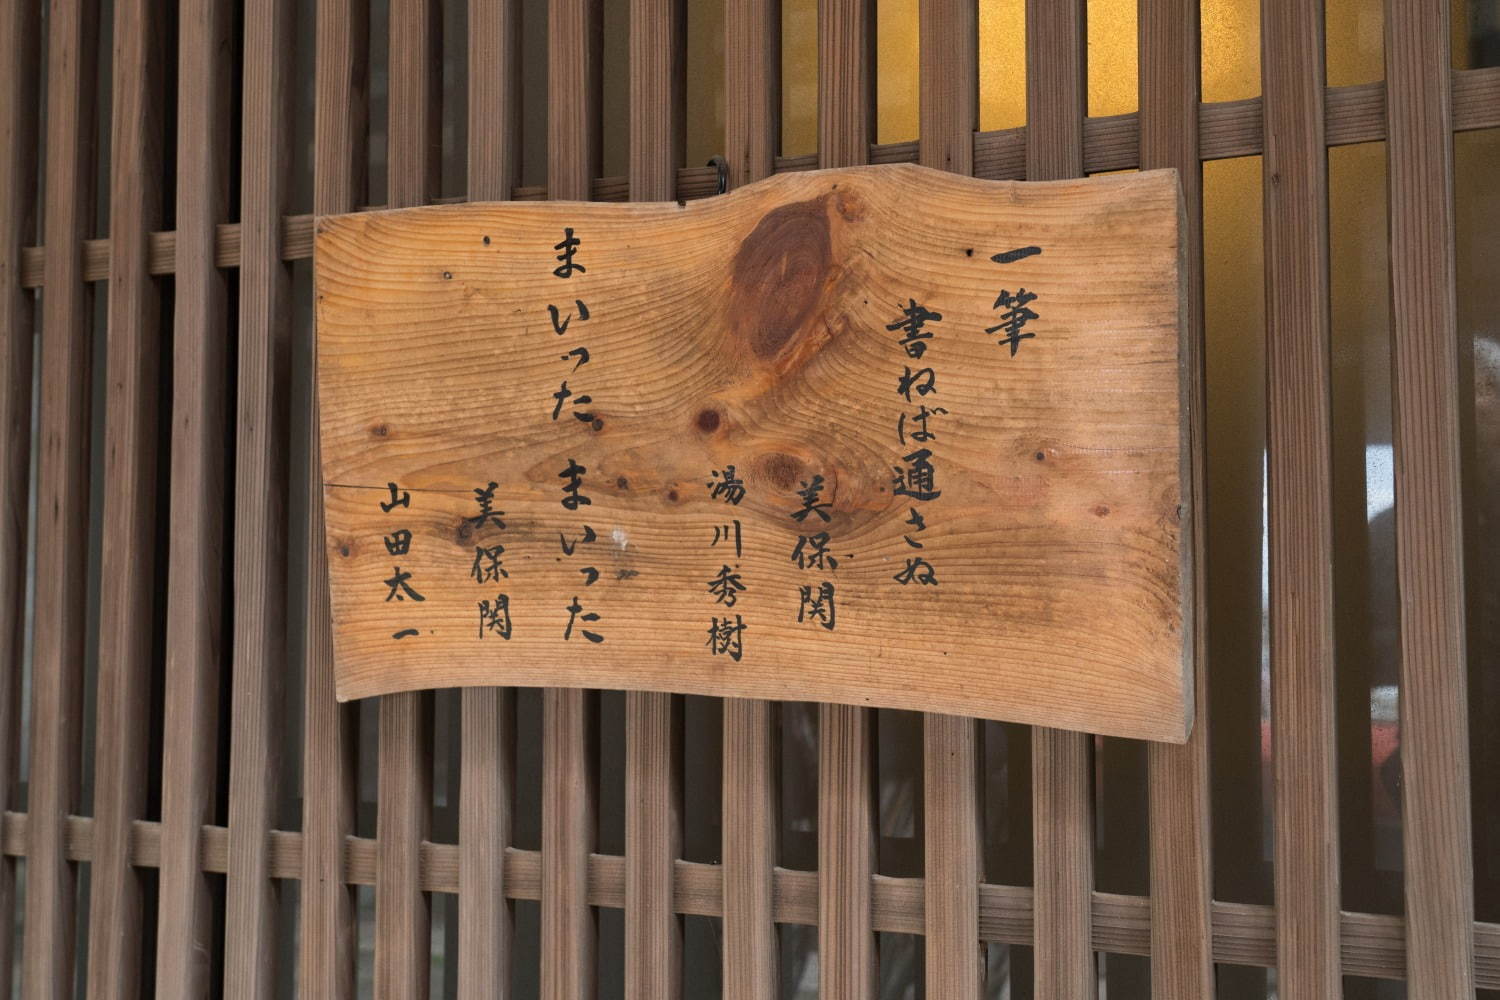 一筆
書ねば通さぬ
美保関
湯川秀樹
まいった。まいった
美保関
山田太一